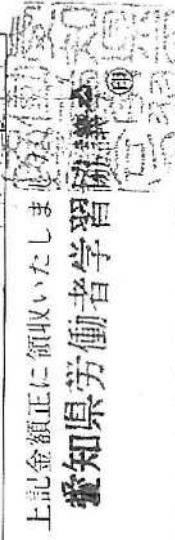 上記金額正に領収いたしました
愛知県労働者学習協議会 ㊞